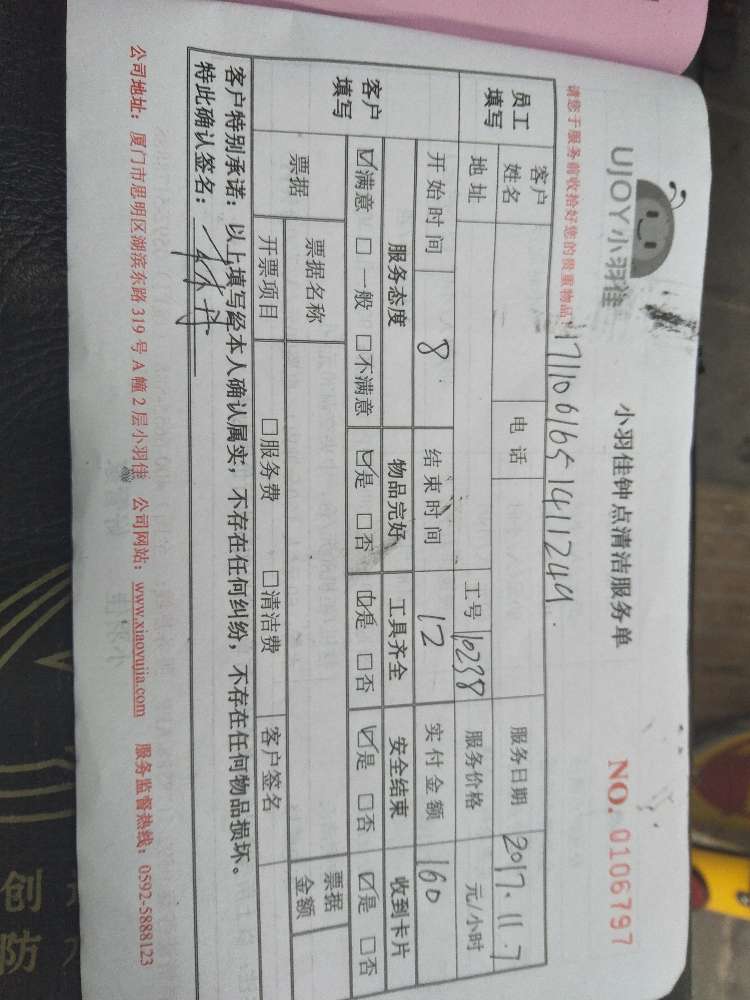 UJOY小羽佳
小羽佳钟点清洁服务单
NO. 0106797
请您于服务前收拾好您的贵重物品！
1711061651411249.
员工填写
客户姓名
电话
服务日期 2017.11.7
地址
工号 10238
服务价格 元/小时
开始时间 8 结束时间 12 实付金额 160
客户填写
服务态度 物品完好 工具齐全 安全结束 收到卡片
☑满意 □一般 □不满意 ☑是 □否 ☑是 □否 ☑是 □否 ☑是 □否
票据
票据名称
票据金额
开票项目 □服务费 □清洁费 客户签名
客户特别承诺：以上填写经本人确认属实，不存在任何纠纷，不存在任何物品损坏。
特此确认签名：
公司地址：厦门市思明区湖滨东路319号A幢2层小羽佳 公司网站：www.xiaoyujia.com 服务监督热线：0592-5888123
创
防